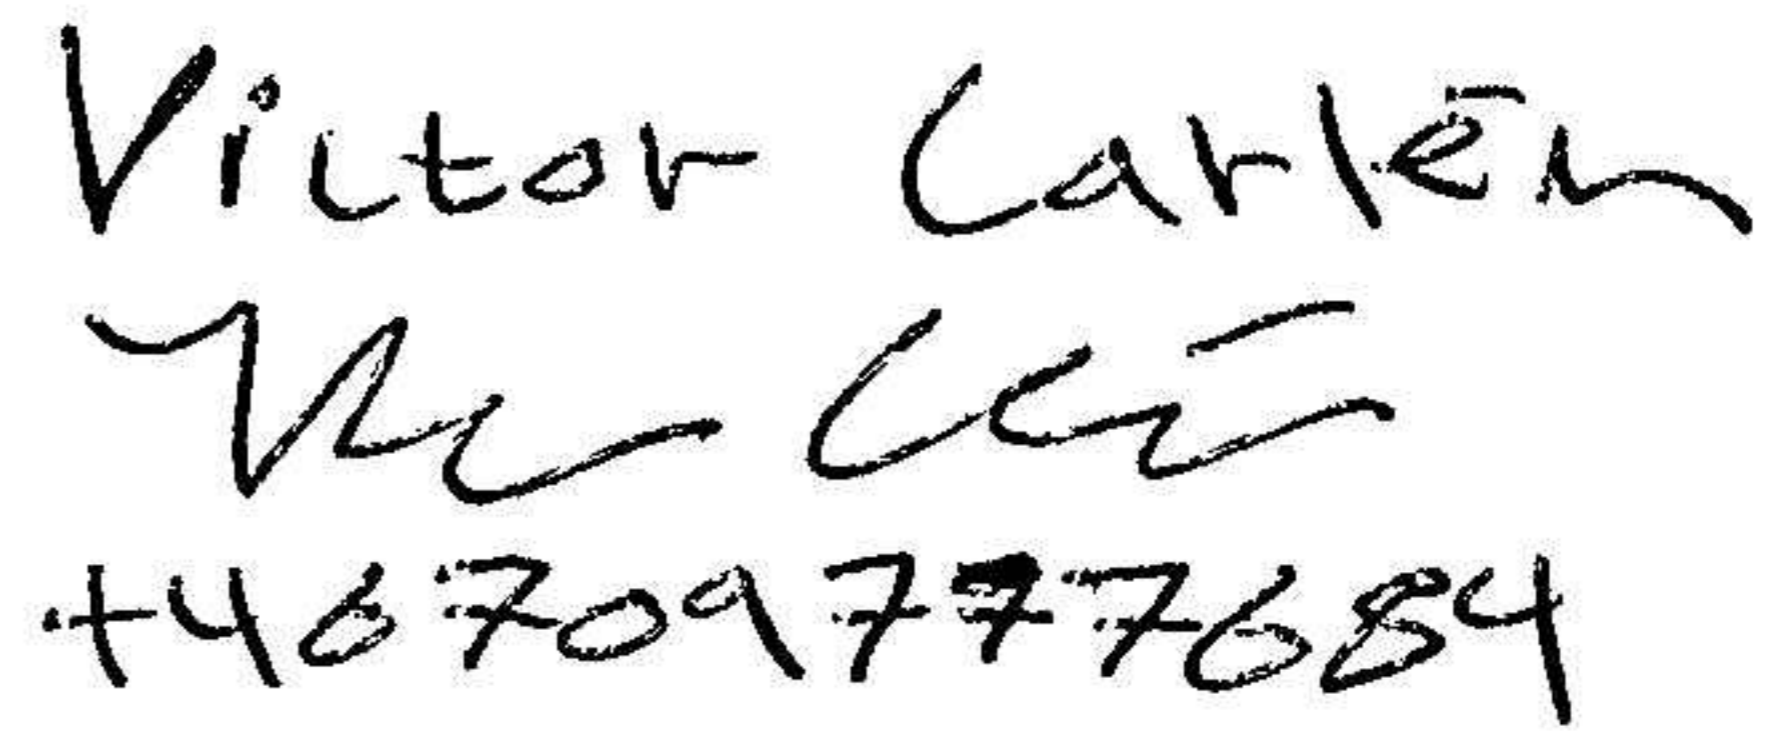 Victor Carlēn
+46709777684